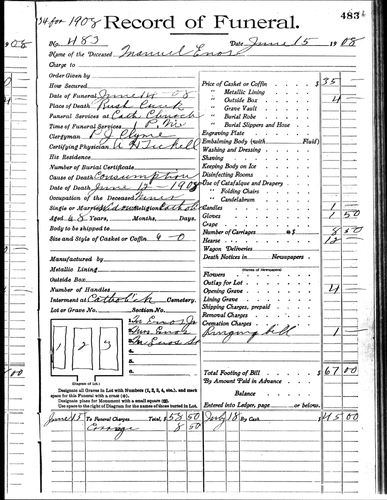 134 for 1908 Record of Funeral. 483
No. 483 Date June 15 1908
Name of the Deceased Manuel Enos
Charge to
Order Given by
How Secured
Date of Funeral June 14 08
Place of Death Rush Creek
Funeral Services at Cath. Church
Time of Funeral Services 1 P.M.
Clergyman P J Clyne
Certifying Physician
His Residence
Number of Burial Certificate
Cause of Death Consumption
Date of Death June 12 - 1908
Occupation of the Deceased Miner
Single or Married Widow Religion Catholic
Aged 68 Years, Months, Days.
Body to be shipped to
Size and Style of Casket or Coffin 6-0
Manufactured by
Metallic Lining
Outside Box
Number of Handles
Interment at Catholick Cemetery.
Lot or Grave No. Section No.
1 2 3
Enos Jr
Enos
Enos Sr
(Diagram of Lot.)
Designate all Graves in Lot with Numbers (1, 2, 3, 4, etc.), and mark
space for this Funeral with a cross (+).
Designate place for Monument with a small square (□).
Use space to the right of Diagram for the names of those buried in Lot.
Price of Casket or Coffin $ 35
" Metallic Lining
" Outside Box 4
" Grave Vault
" Burial Robe
" Burial Slippers and Hose
Engraving Plate
Embalming Body (with Fluid)
Washing and Dressing
Shaving
Keeping Body on Ice
Disinfecting Rooms
Use of Catafalque and Drapery
" Folding Chairs
" Candelabrum
Candles 1
Gloves 1 50
Crape
Number of Carriages @$ 8 50
Hearse 12
Wagon Deliveries
Death Notices in Newspapers
(Names of Newspapers)
Flowers
Outlay for Lot
Opening Grave 4
Lining Grave
Shipping Charges, prepaid
Removal Charges
Cremation Charges
Ringing bell 1
Total Footing of Bill $ 67 00
By Amount Paid in Advance
Balance
Entered into Ledger, page or below.
June 15 To Funeral Charges Total, $ 53 50 July 18 By Cash $ 45 00
Carriage 8 50